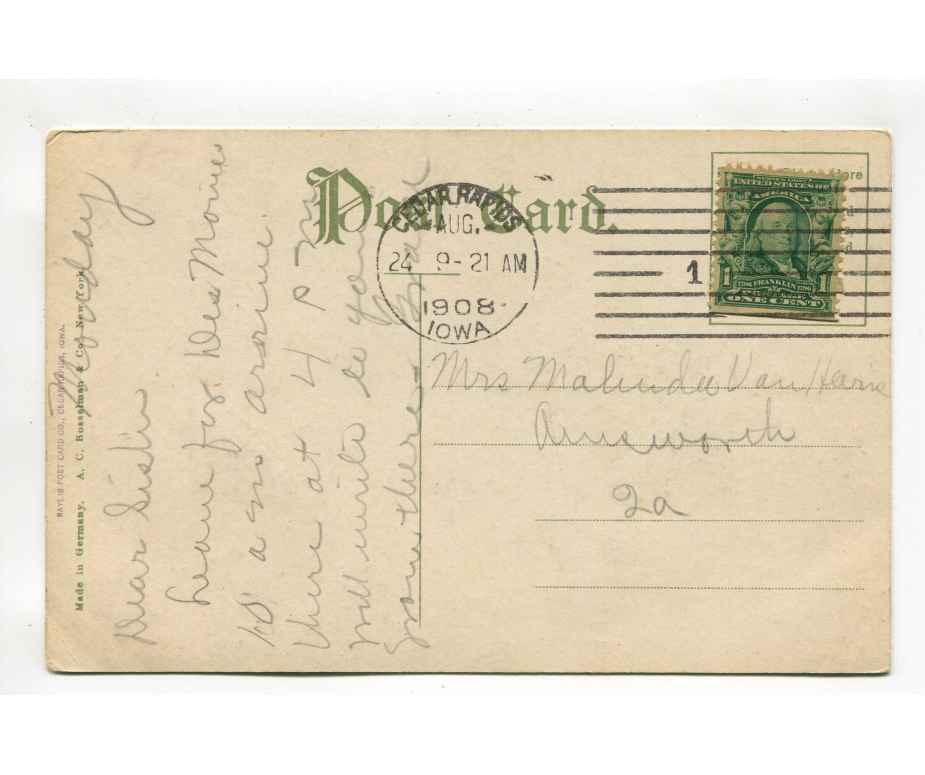 Post Card.
CEDAR RAPIDS
AUG.
24 9-21 AM
1908
IOWA
1
UNITED STATES OF
AMERICA
1 FRANKLIN 1
ONE CENT
Mrs Malinda Van
Ainsworth
Ia
Monday
Dear Sister
Leave for Des Moines
10 a m arorive
there at 4 P M
will write to you
from there
Made in Germany. A. C. Bosselman & Co., New York.
POST CARD CO., CEDAR RAPIDS, IOWA.